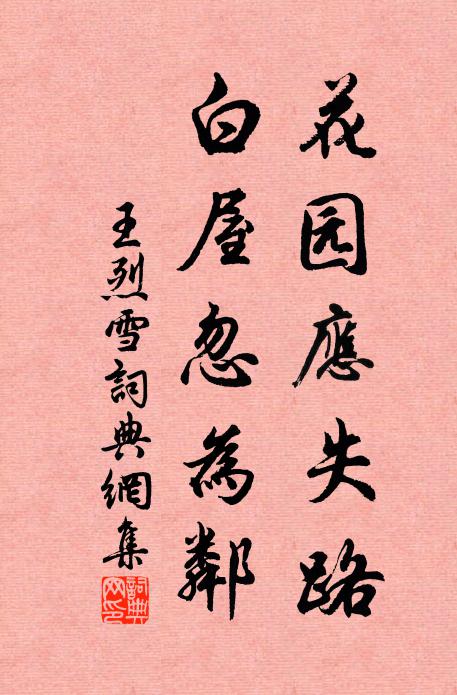 花园應失路
白屋忽為鄰
王烈雪詞典網集
詞典網印